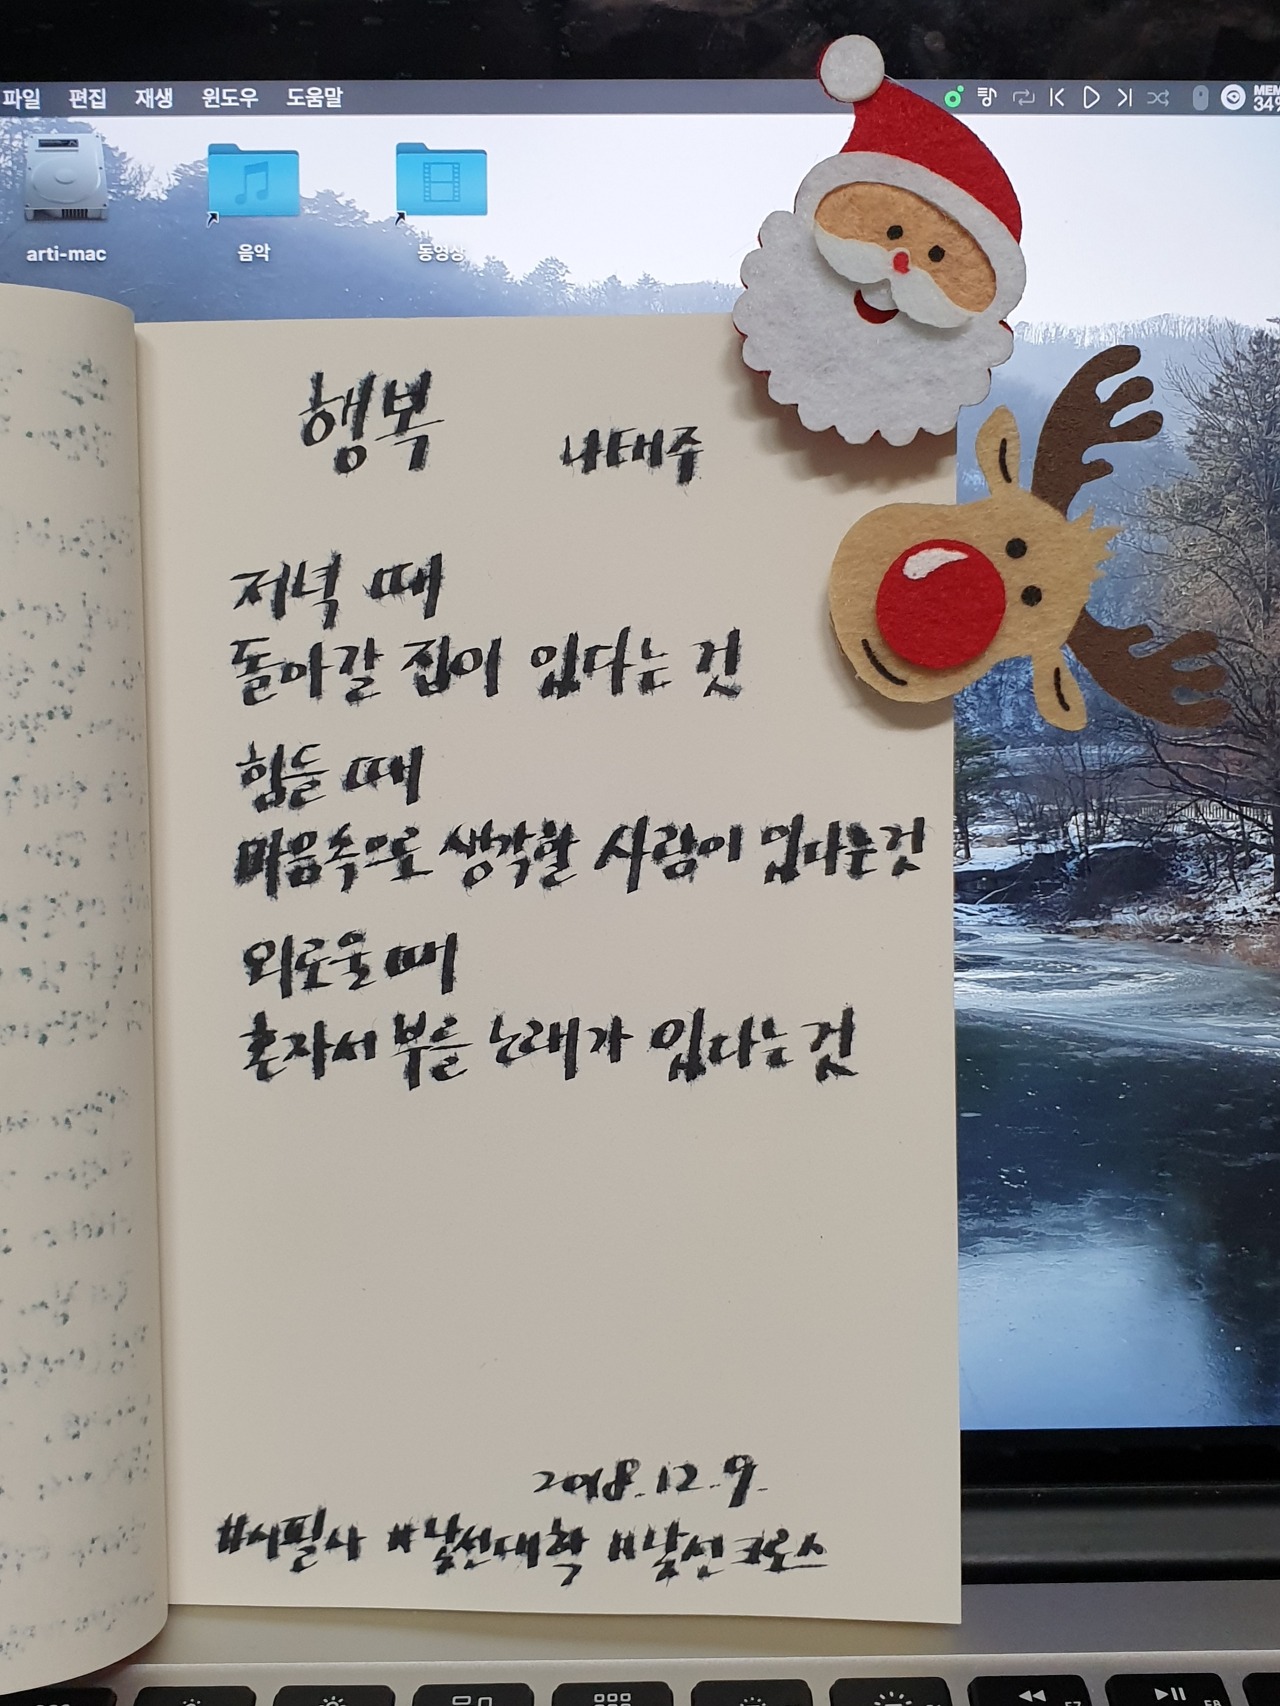 파일 편집 재생 윈도우 도움말
MEM
34%
arti-mac 음악 동영상
행복
나태주
저녁 때
돌아갈 집이 있다는 것
힘들 때
마음속으로 생각할 사람이 있다는 것
외로울 때
혼자서 부를 노래가 있다는 것
2018.12.9.
#시필사 #낯선대학 #낯선크로스
F7 F8